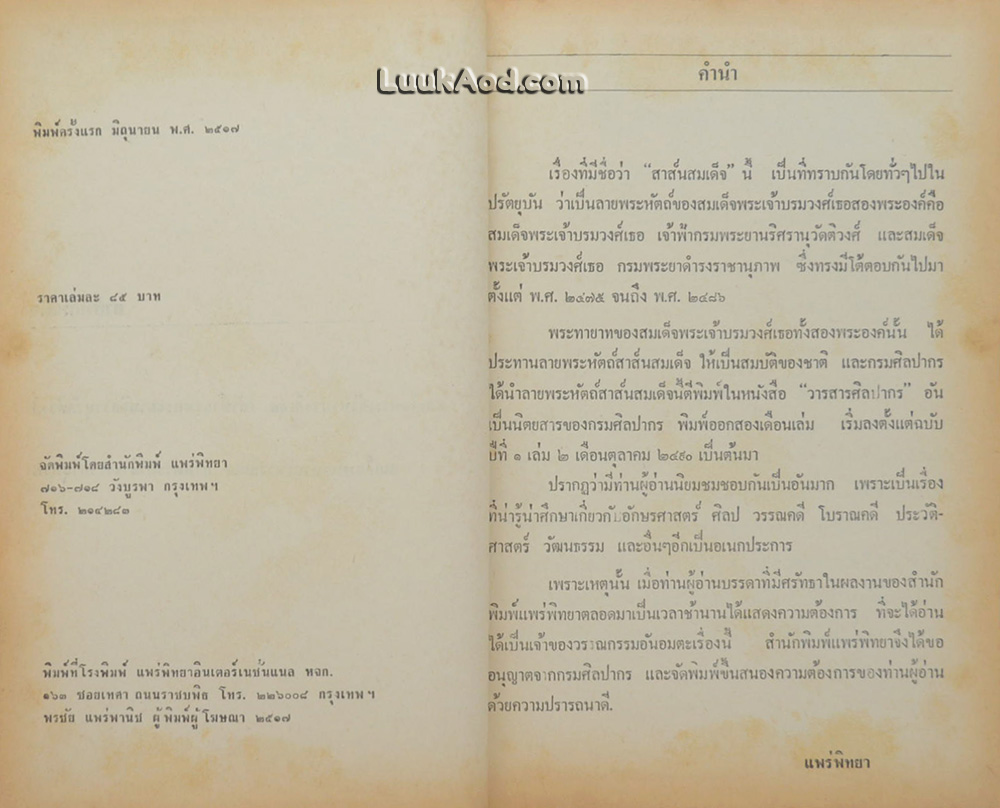 LuukAod.com
พิมพ์ครั้งแรก มิถุนายน พ.ศ. ๒๕๑๗
ราคาเล่มละ ๔๕ บาท
จัดพิมพ์โดยสำนักพิมพ์ แพร่พิทยา
๗๑๖-๗๑๘ วังบูรพา กรุงเทพฯ
โทร. ๒๑๔๒๘๓
พิมพ์ที่โรงพิมพ์ แพร่พิทยาอินเตอร์เนชั่นแนล หจก.
๑๖๓ ซอยเทศา ถนนราชบพิธ โทร. ๒๒๖๐๐๘ กรุงเทพฯ
พรชัย แพร่พานิช ผู้พิมพ์ผู้โฆษณา ๒๕๑๗
คำนำ
เรื่องที่มีชื่อว่า “สาส์นสมเด็จ” นี้ เป็นที่ทราบกันโดยทั่วๆไปใน
ปรัตยุบัน ว่าเป็นลายพระหัตถ์ของสมเด็จพระเจ้าบรมวงศ์เธอสองพระองค์คือ
สมเด็จพระเจ้าบรมวงศ์เธอ เจ้าฟ้ากรมพระยานริศรานุวัดติวงศ์ และสมเด็จ
พระเจ้าบรมวงศ์เธอ กรมพระยาดำรงราชานุภาพ ซึ่งทรงมีโต้ตอบกันไปมา
ตั้งแต่ พ.ศ. ๒๔๗๕ จนถึง พ.ศ. ๒๔๘๖
พระทายาทของสมเด็จพระเจ้าบรมวงศ์เธอทั้งสองพระองค์นั้น ได้
ประทานลายพระหัตถ์สาส์นสมเด็จ ให้เป็นสมบัติของชาติ และกรมศิลปากร
ได้นำลายพระหัตถ์สาส์นสมเด็จนี้ตีพิมพ์ในหนังสือ “วารสารศิลปากร” อัน
เป็นนิตยสารของกรมศิลปากร พิมพ์ออกสองเดือนเล่ม เริ่มลงตั้งแต่ฉบับ
ปีที่ ๑ เล่ม ๒ เดือนตุลาคม ๒๔๙๐ เป็นต้นมา
ปรากฏว่ามีท่านผู้อ่านนิยมชมชอบกันเป็นอันมาก เพราะเป็นเรื่อง
ที่น่ารู้น่าศึกษาเกี่ยวกับอักษรศาสตร์ ศิลป วรรณคดี โบราณคดี ประวัติ-
ศาสตร์ วัฒนธรรม และอื่นๆอีกเป็นอเนกประการ
เพราะเหตุนั้น เมื่อท่านผู้อ่านบรรดาที่มีศรัทธาในผลงานของสำนัก
พิมพ์แพร่พิทยาตลอดมาเป็นเวลาช้านานได้แสดงความต้องการ ที่จะได้อ่าน
ได้เป็นเจ้าของวรรณกรรมอันอมตะเรื่องนี้ สำนักพิมพ์แพร่พิทยาจึงได้ขอ
อนุญาตจากกรมศิลปากร และจัดพิมพ์ขึ้นสนองความต้องการของท่านผู้อ่าน
ด้วยความปรารถนาดี.
แพร่พิทยา